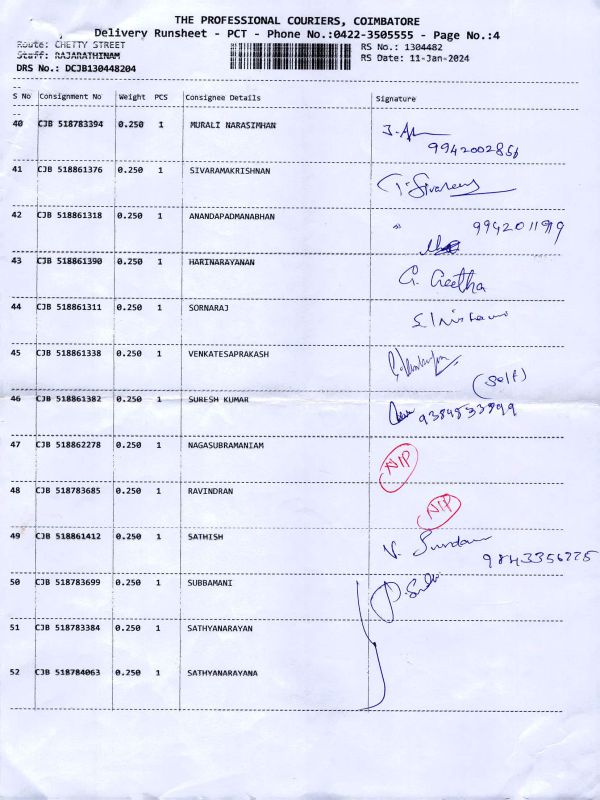 THE PROFESSIONAL COURIERS, COIMBATORE
Delivery Runsheet - PCT - Phone No.:0422-3505555 - Page No.:4
Route: CHETTY STREET RS No.: 1304482
Staff: RAJARATHINAM RS Date: 11-Jan-2024
DRS No.: DCJB130448204
S No Consignment No Weight PCS Consignee Details Signature
40 CJB 518783394 0.250 1 MURALI NARASIMHAN
9942002856
41 CJB 518861376 0.250 1 SIVARAMAKRISHNAN
42 CJB 518861318 0.250 1 ANANDAPADMANABHAN
43 CJB 518861390 0.250 1 HARINARAYANAN G. Geetha
44 CJB 518861311 0.250 1 SORNARAJ
45 CJB 518861338 0.250 1 VENKATESAPRAKASH
(Self)
46 CJB 518861382 0.250 1 SURESH KUMAR
47 CJB 518862278 0.250 1 NAGASUBRAMANIAM NIP
48 CJB 518783685 0.250 1 RAVINDRAN NIP
49 CJB 518861412 0.250 1 SATHISH
50 CJB 518783699 0.250 1 SUBBAMANI
51 CJB 518783384 0.250 1 SATHYANARAYAN
52 CJB 518784063 0.250 1 SATHYANARAYANA